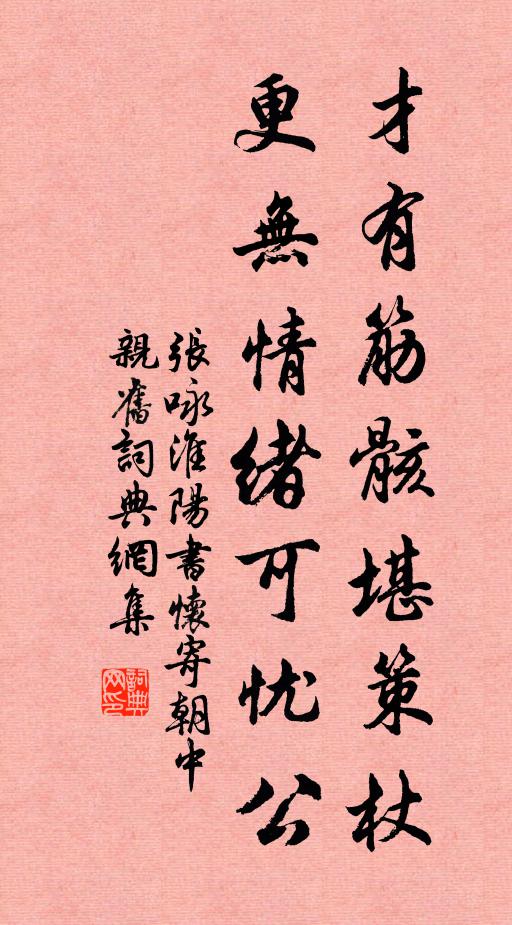 才有筋骸堪策杖
更無情緒可忧公
張咏淮陽書懷寄朝中
親舊詞典網集
詞典
网印